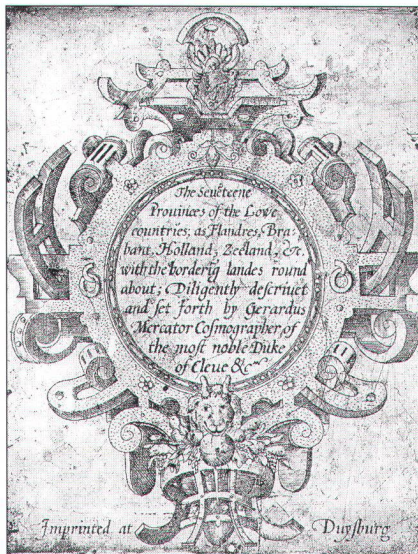 The Seuẽteene
Prouinces of the Lowe
countries; as Flandres, Bra
bant, Holland, Zeeland, &c.
with the borderig landes round
about; Diligently descriuet
and set forth by Gerardus
Mercator Cosmographer, of
the most noble Duke
of Cleue &c
Imprinted at Duysburg